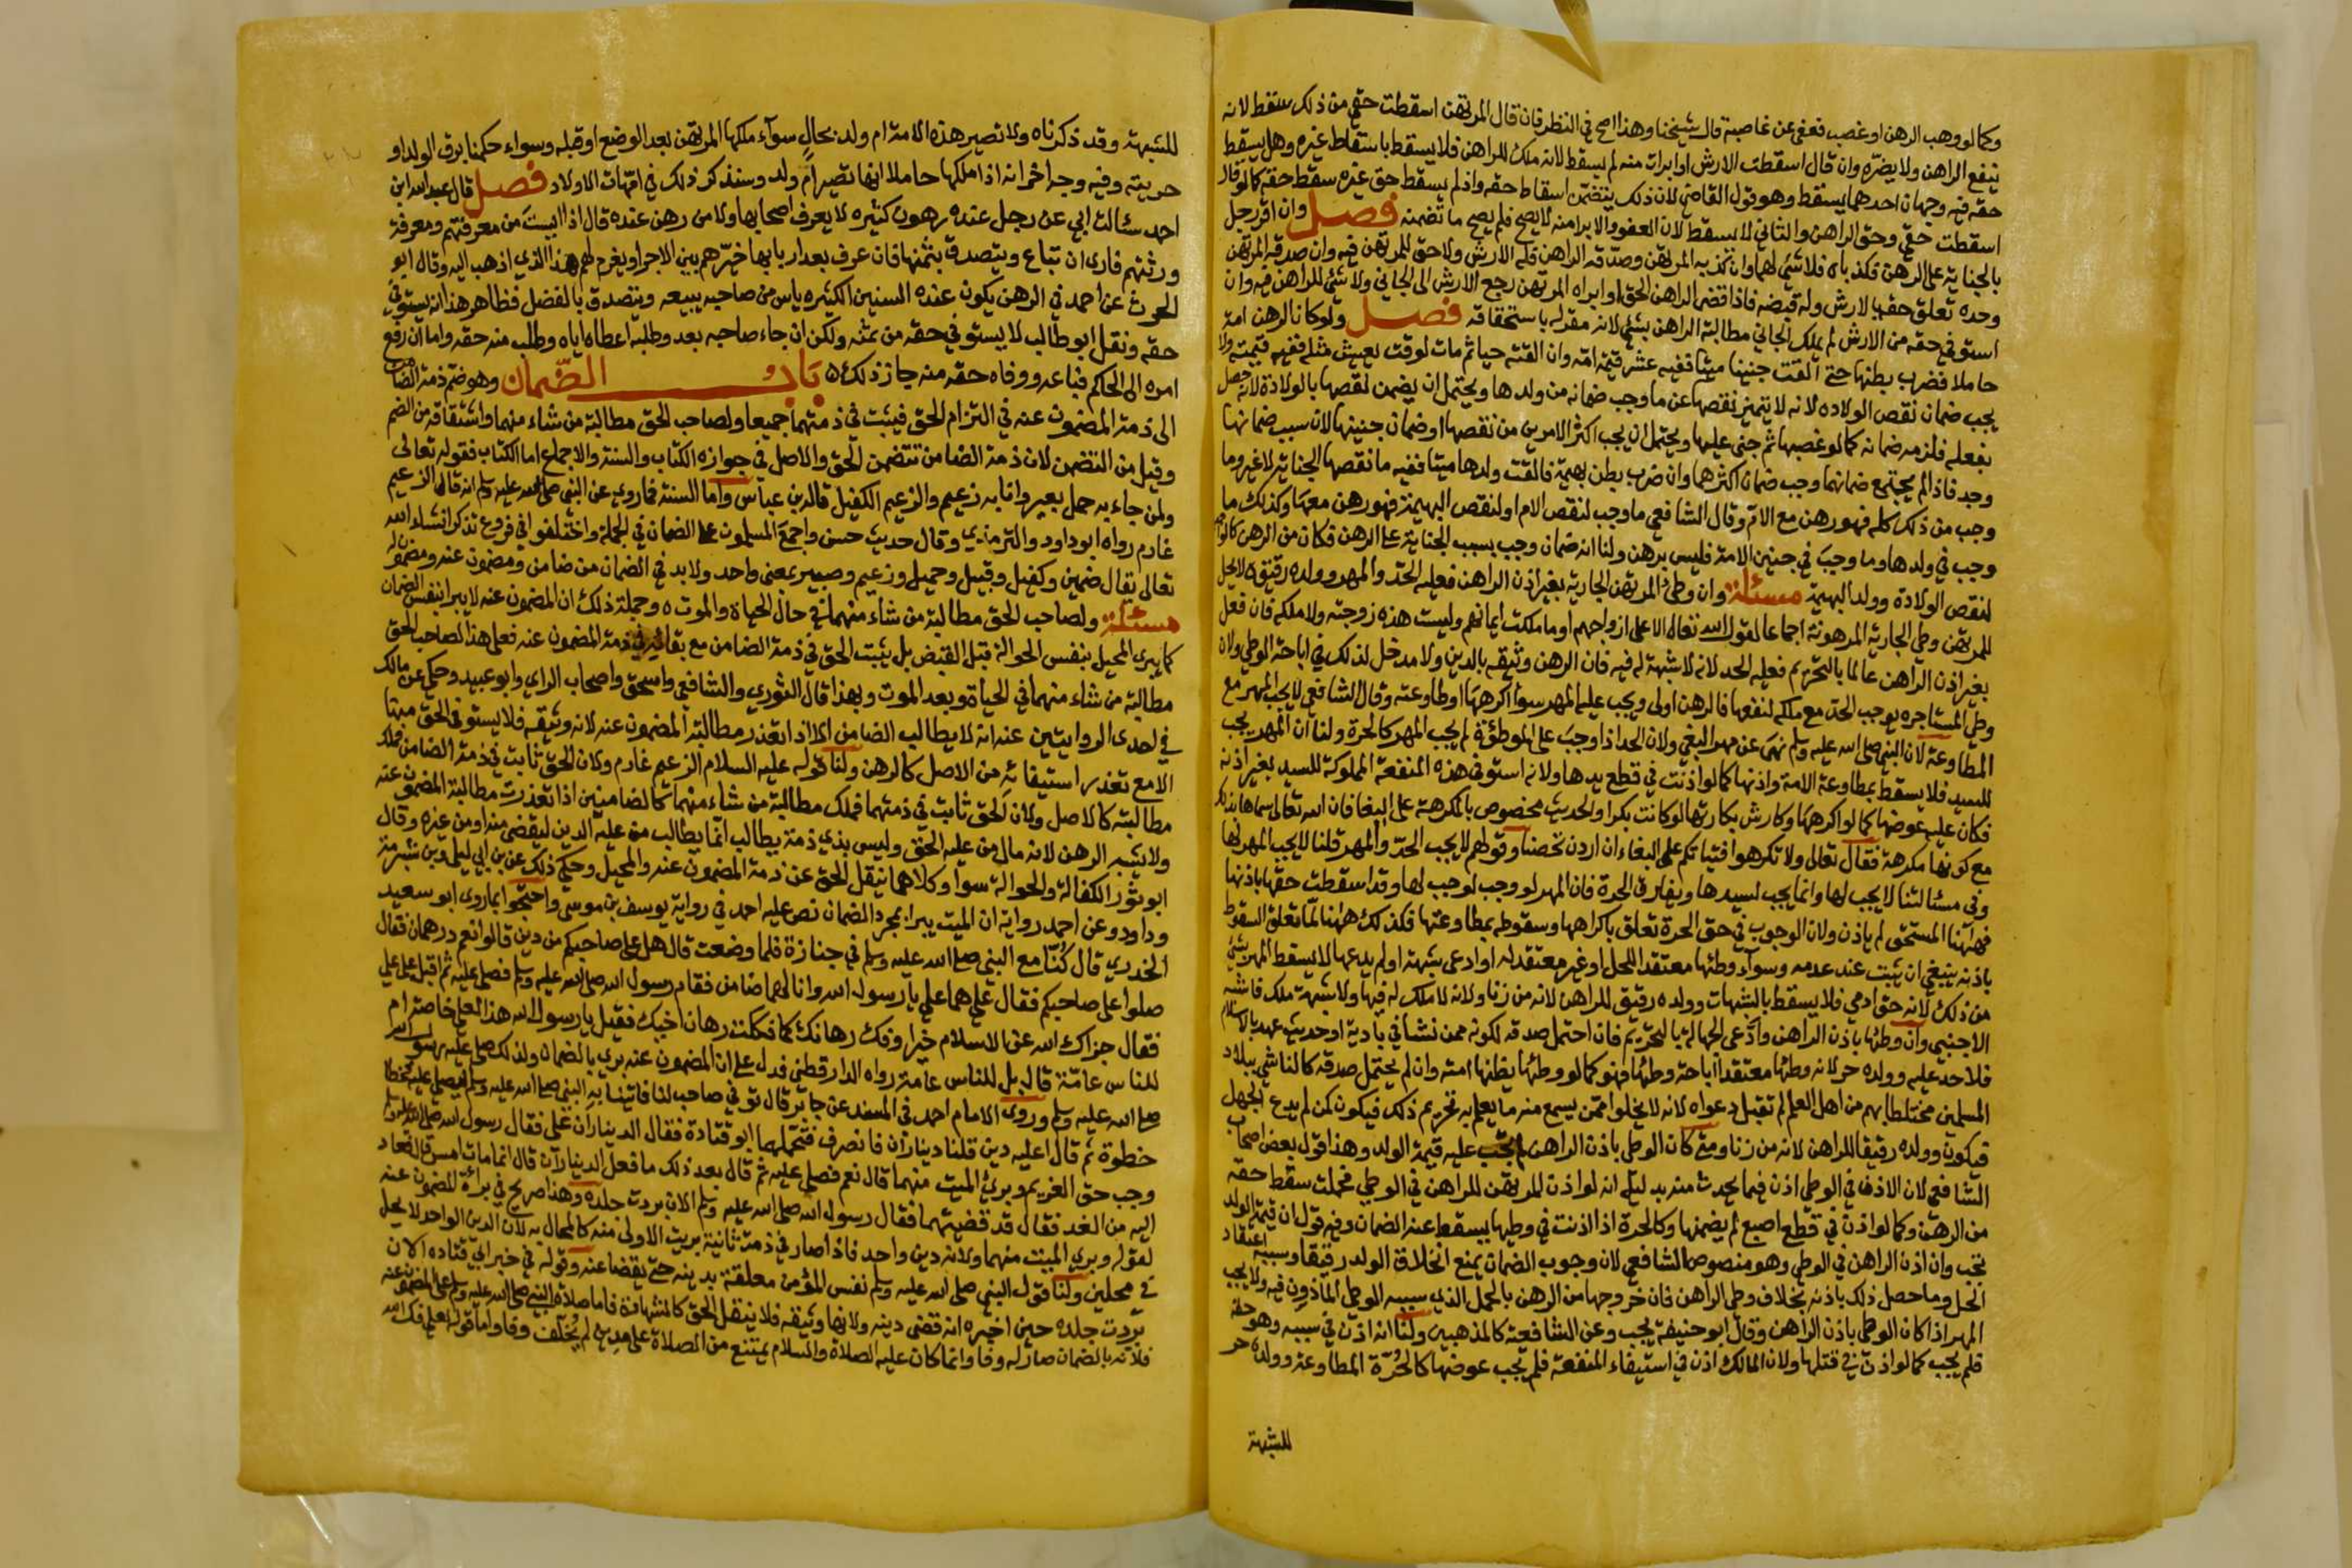 وكما لو وهب الرهن او غصب فعفى عن غاصبة قال شيخنا وهذا اصح في النظر فان قال المرتهن اسقطت حقي من ذلك سقط لانه
ينفع الراهن ولا يضره وان قال اسقطت الارش او ابرات منه لم يسقط لانه ملك للراهن فلا يسقط باسقاط غيره وهل يسقط
حقه فيه وجهان احدهما يسقط وهو قول القاضي لان ذلك يتضمن اسقاط حقه واذ لم يسقط حق غيره سقط حقه كما لو قال
اسقطت حقي وحق الراهن والثاني لا يسقط لان العفو والابرا منه لا يصح فلم يصح ما تضمنه فصل وان اقر رجل
بالجناية على الرهن فكذباه فلا شئ لهما وان كذبه المرتهن وصدقه الراهن فله الارش ولا حق للمرتهن فيه وان صدقه المرتهن
وحده تعلق حقه بالارش وله قبضه فاذا قضى الراهن الحق او ابراه المرتهن رجع الارش الى الجاني ولا شئ للراهن فيه وان
استوفى حقه من الارش لم يملك الجاني مطالبة الراهن بشئ لانه مقر له باستحقاقه فصل ولو كان الرهن امة
حاملا فضرب بطنها حتى القت جنينا ميتا ففيه عشر قيمة امه وان القته حيا ثم مات لوقت يعيش مثله ففيه قيمته ولا
يجب ضمان نقص الولادة لانه لا يتميز نقصها عن ما وجب ضمانه من ولدها ويحتمل ان يضمن نقصها بالولادة لانه حصل
بفعله فلزمه ضمانه كما لو غصبها ثم جنى عليها ويحتمل ان يجب اكثر الامرين من نقصها او ضمان جنينها لان سبب ضمانها
وجد فاذا لم يجتمع ضمانهما وجب ضمان اكثرهما وان ضرب بطن بهيمة فالقت ولدها ميتا ففيه ما نقصها الجناية لا غير وما
وجب من ذلك كله فهو رهن مع الام وقال الشافعي ما وجب لنقص الام او لنقص البهيمة فهو رهن معها وكذلك ما
وجب في ولدها وما وجب في جنين الامة فليس برهن ولنا انه ضمان وجب بسبب الجناية على الرهن فكان من الرهن كالواجب
لنقص الولادة وولد البهيمة مسئلة وان وطئ المرتهن الجارية بغير اذن الراهن فعليه الحد والمهر وولده رقيق لا يحل
للمرتهن وطي الجارية المرهونة اجماعا لقول الله تعالى الا على ازواجهم او ما ملكت ايمانهم وليست هذه زوجته ولا ملكه فان فعل
بغير اذن الراهن عالما بالتحريم فعليه الحد لانه لا شبهة له فيه فان الرهن وثيقه بالدين ولا مدخل لذلك في اباحة الوطي ولان
وطي المستاجرة يوجب الحد مع ملكه لنفعها فالرهن اولى ويجب عليه المهر سواء اكرهها او طاوعته وقال الشافعي لا يجب المهر مع
المطاوعة لان النبي صلى الله عليه وسلم نهى عن مهر البغي ولان الحد اذا وجب على الموطؤة لم يجب المهر كالحرة ولنا ان المهر يجب
للسيد فلا يسقط بمطاوعة الامة واذنها كما لو اذنت في قطع يدها ولانه استوفى هذه المنفعة المملوكة للسيد بغير اذنه
فكان عليه عوضها كما لو اكرهها وكارش بكارتها لو كانت بكرا والحديث مخصوص بالمكرهة على البغا فان الله تعالى سماها بذلك
مع كونها مكرهة فقال تعالى ولا تكرهوا فتياتكم على البغاء ان اردن تحصنا وقولهم لا يجب الحد والمهر قلنا لا يجب المهر لها
وفي مسئالتنا لا يجب لها وانما يجب لسيدها ويفارق الحرة فان المهر لو وجب لوجب لها وقد اسقطت حقها باذنها
فههنا المستحق لم ياذن ولان الوجوب في حق الحرة تعلق باكراهها وسقوطه بمطاوعتها فكذلك ههنا لما تعلق السقوط
باذنه ينبغي ان يثبت عند عدمه وسواء وطئها معتقد اللحل او غير معتقد له او ادعى شبهة او لم يدعها لا يسقط المهر بشئ
من ذلك لانه حق ادمي فلا يسقط بالشبهات وولده رقيق للراهن لانه من زنا ولانه لا ملك له فيها ولا شبهة ملك فاشبه
الاجنبي وان وطئها باذن الراهن وادعى الجهالة بالتحريم فان احتمل صدقه لكونه ممن نشا في بادية او حديث عهد بالاسلام
فلا حد عليه وولده حر لانه وطئها معتقدا اباحة وطئها فهو كما لو وطئها يظنها امته وان لم يحتمل صدقه كالناشي ببلاد
المسلمين مختلطا بهم من اهل العلم لم تقبل دعواه لانه لا يخلوا ممن يسمع منه ما يعلم به تحريم ذلك فيكون كمن لم يدع الجهل
فيكون وولده رقيقا للراهن لانه من زنا ومتى كان الوطي باذن الراهن لم يجب عليه قيمة الولد وهذا قول بعض اصحاب
الشافعي لان الاذن في الوطي اذن فيما يحدث منه بدليل انه لو اذن للمرتهن الراهن في الوطي فحملت سقط حقه
من الرهن وكما لو اذن في قطع اصبع لم يضمنها وكالحرة اذا اذنت في وطيها يسقط عنه الضمان وفيه قول ان قيمة الولد
تجب وان اذن الراهن في الوطي وهو منصوص الشافعي لان وجوب الضمان يمنع انخلاق الولد رقيقا وسببه اعتقاد
الحل وما حصل ذلك باذنه بخلاف وطي الراهن فان خروجها من الرهن بالحمل الذي سببه الوطي الماذون فيه ولا يجب
المهر اذا كان الوطي باذن الراهن وقال ابو حنيفة يجب وعن الشافعية كالمذهبين ولنا انه اذن في سببه وهو حقه
فلم يجب كما لو اذن في قتلها ولان المالك اذن في استيفاء المنفعة فلم يجب عوضها كالحرة المطاوعة وولده حر
للشبهة
للشبهة وقد ذكرناه ولا تصير هذه الامة ام ولد بحال سواء ملكها المرتهن بعد الوضع او قبله وسواء حكمنا برق الولد او
حريته وفيه وجه اخر انه اذا ملكها حاملا انها تصير ام ولد وسنذكر ذلك في امهات الاولاد فصل قال عبد الله ابن
احمد سئالت ابي عن رجل عنده رهون كثيرة لا يعرف اصحابها ولا من رهن عنده قال اذا ايست من معرفتهم ومعرفة
ورثتهم فارى ان تباع ويتصدق بثمنها فان عرف بعد اربابها خيرهم بين الاجر او يغرم لهم هذا الذي اذهب اليه وقال ابو
الحرث عن احمد في الرهن يكون عنده السنين الكثيرة ياس من صاحبه يبيعه ويتصدق بالفضل فظاهر هذا انه يستوفي
حقه ونقل ابو طالب لا يستوفي حقه من ثمنه ولكن ان جاء صاحبه بعد وطلبه اعطاه اياه وطلب منه حقه واما ان رفع
امره الى الحاكم فباعه ووفاه حقه منه جاز ذلك باب الضمان وهو ضم ذمة الضامن
الى ذمة المضمون عنه في التزام الحق فيثبت في ذمتهما جميعا ولصاحب الحق مطالبة من شاء منهما واشتقاقه من الضم
وقيل من التضمن لان ذمة الضامن تتضمن الحق والاصل في جوازه الكتاب والسنة والاجماع اما الكتاب فقوله تعالى
ولمن جاء به حمل بعير وانا به زعيم والزعيم الكفيل قاله بن عباس واما السنة فما روي عن النبي صلى الله عليه وسلم انه قال الزعيم
غارم رواه ابو داود والترمذي وقال حديث حسن واجمع المسلمون على الضمان في الجملة واختلفوا في فروع نذكر انشاء الله
تعالى يقال ضمين وكفيل وقبيل وحميل وزعيم وصبير بمعنى واحد ولا بد في الضمان من ضامن ومضمون عنه ومضمون له
مسئلة ولصاحب الحق مطالبة من شاء منهما في حال الحياة والموت وجملة ذلك ان المضمون عنه لا يبرا بنفس الضمان
كما يبرى المحيل بنفس الحوالة قبل القبض بل يثبت الحق في ذمة الضامن مع بقائه في ذمة المضمون عنه فعلى هذا لصاحب الحق
مطالبة من شاء منهما في الحياة وبعد الموت وبهذا قال الثوري والشافعي واسحق واصحاب الراي وابو عبيد وحكي عن مالك
في احدى الروايتين عنه انه لا يطالب الضامن الا اذا تعذر مطالبة المضمون عنه لانه وثيقه فلا يستوفى الحق منها
الا مع تعذر استيفائه من الاصل كالرهن ولنا قوله عليه السلام الزعيم غارم ولان الحق ثابت في ذمة الضامن فملك
مطالبته كالاصل ولان الحق ثابت في ذمتهما فملك مطالبة من شاء منهما كالضامنين اذا تعذرت مطالبة المضمون عنه
ولا يشبه الرهن لانه مال من عليه الحق وليس بذي ذمة يطالب انما يطالب من عليه الدين ليقضى منه او من غيره وقال
ابو ثور الكفالة والحوالة سواء وكلاهما ينقل الحق عن ذمة المضمون عنه والمحيل وحكي ذلك عن بن ابي ليلى وبن شبرمة
وداود وعن احمد رواية ان الميت يبرا بمجرد الضمان نص عليه احمد في رواية يوسف بن موسى واحتجوا بما روى ابو سعيد
الخدري قال كنا مع النبي صلى الله عليه وسلم في جنازة فلما وضعت قال هل على صاحبكم من دين قالوا نعم درهمان فقال
صلوا على صاحبكم فقال علي هما علي يا رسول الله وانا لهما ضامن فقام رسول الله صلى الله عليه وسلم فصلى عليه ثم اقبل على علي
فقال جزاك الله عن الاسلام خيرا وفك رهانك كما فككت رهان اخيك فقيل يا رسول الله هذا لعلي خاصة ام
للناس عامة قال بل للناس عامة رواه الدارقطني فدل على ان المضمون عنه بري بالضمان ولذلك صلى عليه رسول الله
صلى الله عليه وسلم وروى الامام احمد في المسند عن جابر قال توفي صاحب لنا فاتينا به النبي صلى الله عليه وسلم ليصلي عليه فخطا
خطوة ثم قال اعليه دين قلنا ديناران فانصرف فتحملهما ابو قتادة فقال الديناران علي فقال رسول الله صلى الله عليه وسلم
وجب حق الغريم وبرئ الميت منهما قال نعم فصلى عليه ثم قال بعد ذلك ما فعل الديناران قال انما مات امس قال فعاد
اليه من الغد فقال قد قضيتهما فقال رسول الله صلى الله عليه وسلم الان بردت جلده وهذا صريح في براة المضمون عنه
لقوله وبري الميت منهما ولانه دين واحد فاذا صار في ذمة ثانية بريت الاولى منه كالمحال به لان الدين الواحد لا يحل
في محلين ولنا قول النبي صلى الله عليه وسلم نفس المؤمن معلقة بدينه حتى يقضا عنه وقوله في خبر ابي قتادة الان
بردت جلده حين اخبره انه قضى دينه ولانها وثيقه فلا ينتقل الحق كالشهادة فاما صلاة النبي صلى الله عليه وسلم على المضمون عنه
فلانه بالضمان صار له وفا وانما كان عليه الصلاة والسلام يمتنع من الصلاة على مدين لم يخلف وفا واما قوله لعلي فك الله